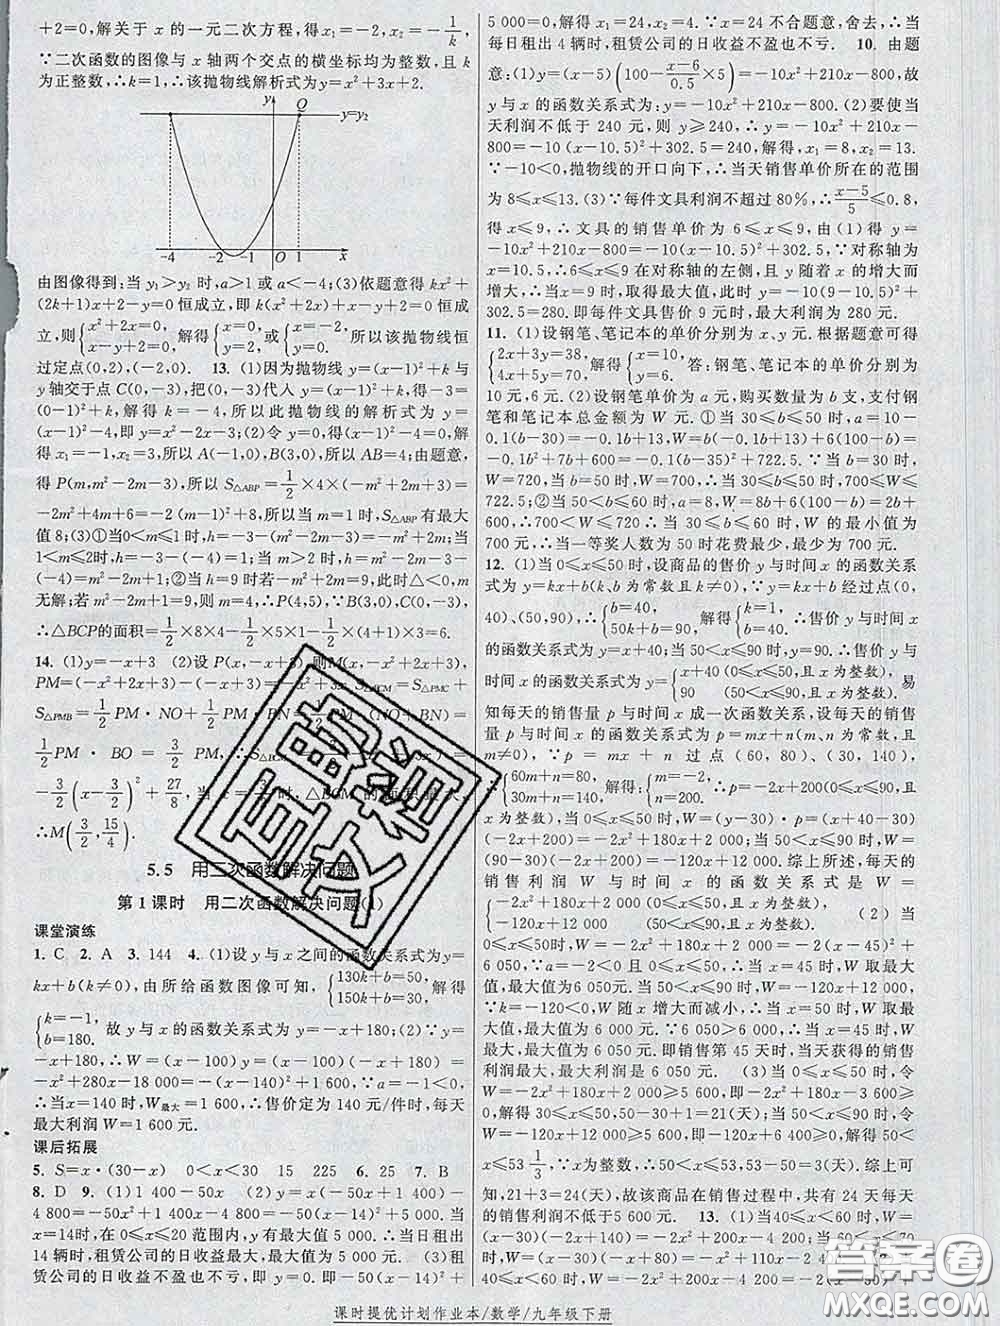 +2=0,解关于 x 的一元二次方程，得 x₁=-2,x₂=-1/k.
∵二次函数的图像与 x 轴两个交点的横坐标均为整数,且 k
为正整数,∴k=1,∴该抛物线解析式为 y=x²+3x+2.
y Q
y=y₂
-4 -2 -1 O 1 x
由图像得到:当 y₁>y₂ 时,a>1 或 a<-4;(3)依题意得 kx²+
(2k+1)x+2-y=0 恒成立,即 k(x²+2x)+x-y+2=0 恒成
立,则{x²+2x=0, x-y+2=0. 解得{x=0, y=2,或{x=-2, y=0. 所以该抛物线恒
过定点(0,2),(-2,0). 13. (1)因为抛物线 y=(x-1)²+k 与
y 轴交于点 C(0,-3),把(0,-3)代入 y=(x-1)²+k,得-3=
(0-1)²+k,解得 k=-4,所以此抛物线的解析式为 y=
(x-1)²-4,即 y=x²-2x-3;(2)令 y=0,得(x-1)²-4=0,解得
x₁=-1,x₂=3,所以 A(-1,0),B(3,0),所以 AB=4;由题意,
得 P(m,m²-2m-3),所以 S△ABP=1/2×4×(-m²+2m+3)=
-2m²+4m+6=-2(m-1)²+8,所以当 m=1 时,S△ABP有最大
值 8;(3)①当0<m≤1时,h=-3-(m²-2m-3)=-m²+2m;当
1<m≤2时,h=-3-(-4)=1;当 m>2 时,h=m²-2m-3-(-4)
=m²-2m+1;②当 h=9 时若-m²+2m=9,此时△<0,m
无解;若 m²-2m+1=9,则 m=4,∴P(4,5),∵B(3,0),C(0,-3),
∴△BCP的面积=1/2×8×4-1/2×5×1-1/2×(4+1)×3=6.
14. (1)y=-x+3 (2)设 P(x,-x+3),则M(x,-x²+2x+3),
PM=(-x²+2x+3)-(-x+3)=-x²+3x,S△BCM=S△PMC+
S△PMB=1/2PM·NO+1/2PM·BN=1/2PM(NO+BN)=
1/2PM·BO=3/2PM,∴S△BCM
-3/2(x-3/2)²+27/8,当 x=3/2时,△BCM的面积最大,
∴M(3/2,15/4).
5.5 用二次函数解决问题
第1课时 用二次函数解决问题(1)
课堂演练
1. C 2. A 3. 144 4. (1)设 y 与 x 之间的函数关系式为 y=
kx+b(k≠0),由所给函数图像可知,{130k+b=50, 150k+b=30, 解得
{k=-1, b=180. 故 y 与 x 的函数关系式为 y=-x+180;(2)∵y=
-x+180,∴W=(x-100)y=(x-100)(-x+180)=
-x²+280x-18 000=-(x-140)²+1 600,∵-1<0,
∴当x=140 时,W最大=1 600,∴售价定为 140 元/件时,每天
最大利润 W=1 600 元.
课后拓展
5. S=x·(30-x) 0<x<30 15 225 6. 25 7. B
8. D 9. (1)1 400-50x (2)y=x(-50x+1 400)-
4 800=-50x²+1 400x-4 800=-50(x-14)²+5 000.当
x=14时,在 0≤x≤20 范围内,y 有最大值 5 000,∴当日租出
14 辆时,租赁公司的日收益最大,最大值为 5 000 元. (3)租
赁公司的日收益不盈也不亏,即 y=0,即-50(x-14)²+
5 000=0,解得 x₁=24,x₂=4,∵x=24 不合题意,舍去,∴当
每日租出 4 辆时,租赁公司的日收益不盈也不亏. 10. 由题
意:(1)y=(x-5)(100-(x-6)/0.5×5)=-10x²+210x-800,故
y 与 x 的函数关系式为:y=-10x²+210x-800. (2)要使当
天利润不低于 240 元,则 y≥240,∴y=-10x²+210x-
800=-10(x-10.5)²+302.5=240,解得,x₁=8,x₂=13.
∵-10<0,抛物线的开口向下,∴当天销售单价所在的范围
为 8≤x≤13. (3)∵每件文具利润不超过 80%,∴(x-5)/5≤0.8,
得 x≤9,∴文具的销售单价为 6≤x≤9,由(1)得 y=
-10x²+210x-800=-10(x-10.5)²+302.5,∵对称轴为
x=10.5,∴6≤x≤9 在对称轴的左侧,且 y 随着 x 的增大而
增大,∴当x=9 时,取得最大值,此时 y=-10(9-10.5)²+
302.5=280. 即每件文具售价 9 元时,最大利润为 280 元.
11. (1)设钢笔、笔记本的单价分别为 x、y元. 根据题意可得
{2x+3y=38, 4x+5y=70, 解得{x=10, y=6. 答:钢笔、笔记本的单价分别为
10 元,6 元. (2)设钢笔单价为 a 元,购买数量为 b 支,支付钢
笔和笔记本总金额为 W 元. ①当 30≤b≤50 时,a=10-
0.1(b-30)=-0.1b+13,W=b(-0.1b+13)+6(100-b)=
-0.1b²+7b+600=-0.1(b-35)²+722.5. ∵当 b=30 时,
W=720,当 b=50 时,W=700,∴当 30≤b≤50 时,700≤W≤
722.5;②当 50<b≤60 时,a=8,W=8b+6(100-b)=2b+
600,∴700<W≤720 ∴当 30≤b≤60 时,W 的最小值为
700 元,∴当一等奖人数为 50 时花费最少,最少为 700 元.
12. (1)当 0≤x≤50时,设商品的售价 y与时间x的函数关系
式为 y=kx+b(k、b为常数且k≠0),∵y=kx+b 经过点(0,
40)、(50,90),∴{b=40, 50k+b=90, 解得{k=1, b=40, ∴售价 y 与时间 x
的函数关系式为 y=x+40;当50<x≤90时,y=90. ∴售价 y与
时间x 的函数关系式为y={x+40(0≤x≤50,且x为整数), 90 (50<x≤90,且x为整数). 易
知每天的销售量 p 与时间 x 成一次函数关系,设每天的销售
量 p 与时间 x 的函数关系式为 p=mx+n(m、n 为常数,且
m≠0),∵p=mx+n 过点 (60,80)、(30,140),
∴{60m+n=80, 30m+n=140, 解得{m=-2, n=200, ∴p=-2x+200(0≤x≤90,且
x为整数),当 0≤x≤50 时,W=(y-30)·p=(x+40-30)
(-2x+200)=-2x²+180x+2000;当50<x≤90时,W=(90-30)
(-2x+200)=-120x+12 000. 综上所述,每天的
销售利润 W 与时间 x 的函数关系式是
(2)当
0≤x≤50时,W=-2x²+180x+2 000=-2(x-45)²+6 050,
∵a=-2<0且 0≤x≤50,∴当x=45 时,W 取最大值,最大
值为 6 050元.当 50<x≤90时,W=-120x+12 000,
∵k=-120<0,W 随 x 增大而减小,∴当 x=50 时,W取最
大值,最大值为 6 000 元. ∵6 050>6 000,∴当x=45 时,W
最大,最大值为 6 050 元. 即销售第 45 天时,当天获得的销售
利润最大,最大利润是 6 050 元. (3)当 0≤x≤50 时,令
W=-2x²+180x+2 000≥5 600,即-2x²+180x-3 600≥
0,解得 30≤x≤50,50-30+1=21(天);当50<x≤90时,令
W=-120x+12 000≥5 600,即-120x+6 400≥0,解得 50<
x≤53 1/3,∵x为整数,∴50<x≤53,53-50=3(天).综上可
知,21+3=24(天),故该商品在销售过程中,共有 24 天每天
的销售利润不低于5 600 元. 13. (1)当40≤x<60
时,W=(x-30)(
40≤x≤60 时,W=-x²+110x-2 400
课时提优计划作业本/数学/九年级下册
互助文档
答案圈
MXQE.COM